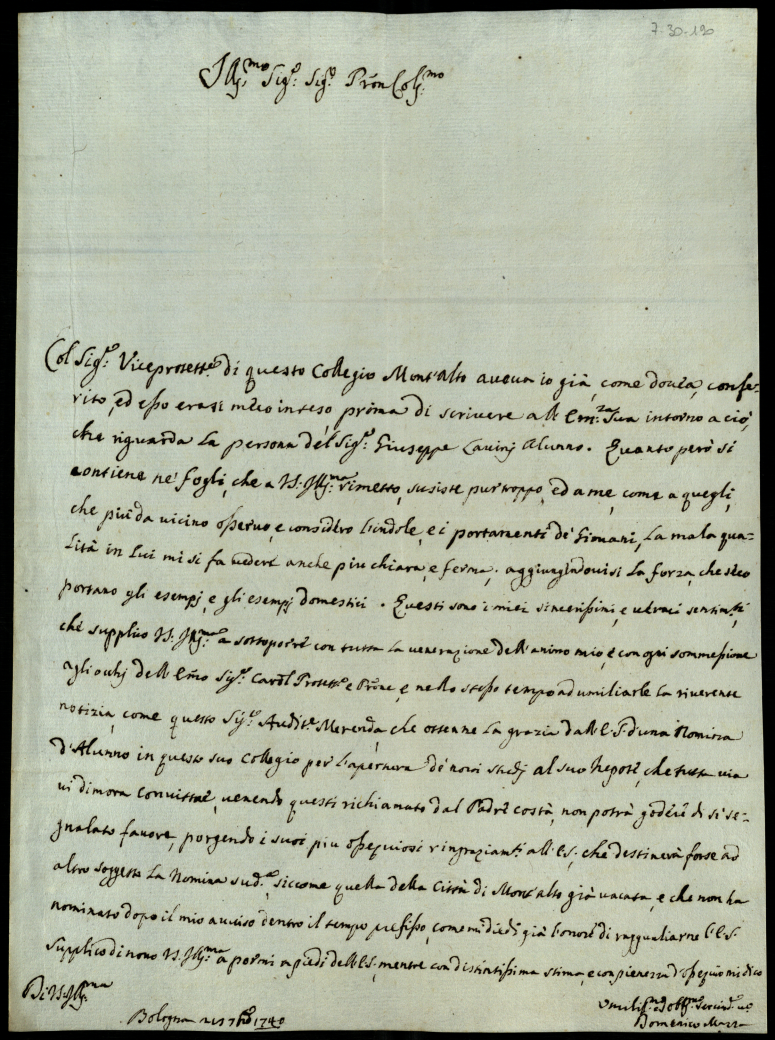 7-30-190
Ill.mo Sig.e Sig.e Pron Col.mo
Col Sig.e Viceprotett.e di questo Collegio Mont'alto aveva io già, come dovea, confe-
rito, ed esso erasi meco inteso prima di scrivere all'Em.za Sua intorno a ciò,
che riguarda la persona del Sig.e Giuseppe Lavinj Alunno. Quanto però si
contiene ne' fogli, che a V.S. Ill.ma rimetto, susiste purtroppo, ed a me, come a quegli,
che più da vicino osservo, e considero l'indole, e i portamenti de' Giovani, la mala qua-
lità in lui mi si fa vedere anche più chiara, e ferma; aggiungendovisi la forza, che seco
portano gli esempj, e gli esempj domestici. Questi sono i miei sincerissimi, e veraci sentim.ti,
che supplico V.S. Ill.ma a sottoporre con tutta la venerazione dell'animo mio, e con ogni sommessione
agli occhj dell'Emo Sig.e Card.l Protett.e e Prone, e nello stesso tempo ad umiliarle la riverente
notizia, come questo Sig.e Audit.e Merenda, che ottenne la grazia dall'E.S. d'una Nomina
d'Alunno in questo suo Collegio per l'apertura de' novi studj al suo Nepote, che tutta via
vi dimora Convittore, venendo questi richiamato dal Padre costà, non potrà godere di sì se-
gnalato favore, porgendo i suoi più ossequiosi ringraziam.ti all'E.S., che destinerà forse ad
altro soggetto la Nomina sud.a, siccome quella della Città di Mont'alto già vacata, e che non ha
nominato dopo il mio avviso dentro il tempo prefisso, come mi diedi già l'onore di ragguagliarne l'E.S.
Supplico di novo V.S. Ill.ma a pormi a piedi dell'E.S., mentre con distintissima stima, e con pienezza d'ossequio mi dico
Di V.S. Ill.ma
Bologna 7bre 1740
Umiliss.mo ed Obb.mo Servid.e
Domenico Mazza